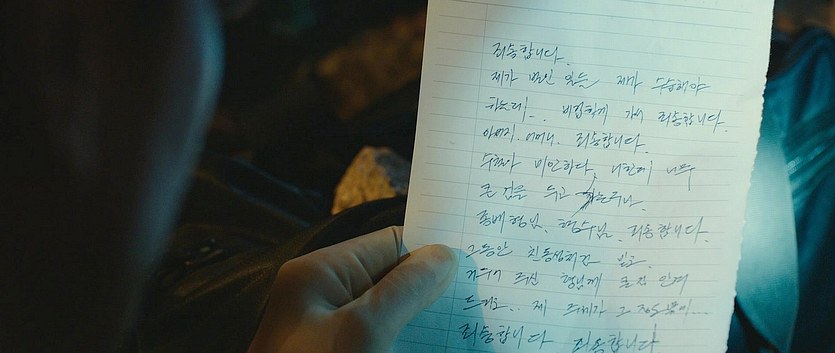 죄송합니다.
제가 벌인 일은 제가 수습해야
하는데.. 비겁하게 가서 죄송합니다.
아버지. 어머니. 죄송합니다.
미안하다. 너한테 너무
큰 짐을 두고 가는구나.
형님. 형수님. 죄송합니다.
그동안 친동생처럼 믿고.
거두어 주신 형님께 큰 짐 안겨
드려요.. 제
죄송합니다 죄송합니다